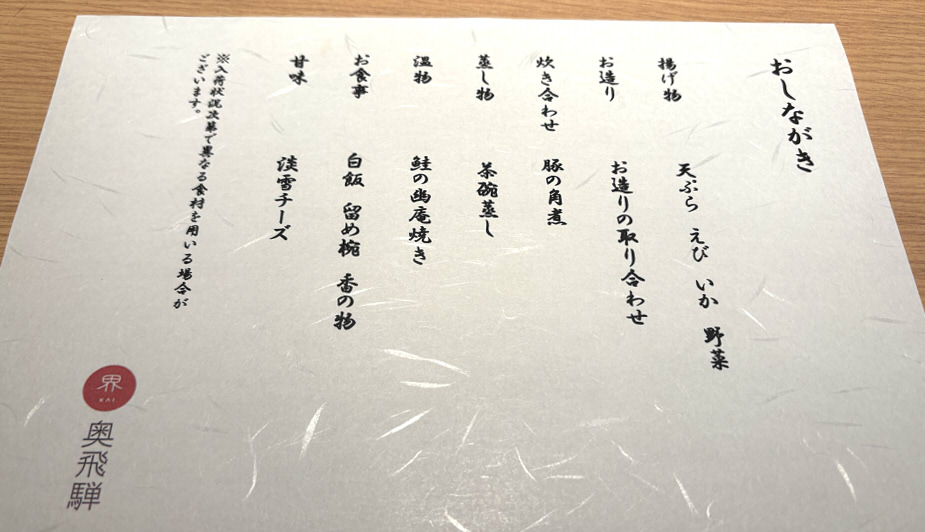 おしながき
揚げ物 天ぷら えび いか 野菜
お造り お造りの取り合わせ
炊き合わせ 豚の角煮
蒸し物 茶碗蒸し
温物 鮭の幽庵焼き
お食事 白飯 留め椀 香の物
甘味 淡雪チーズ
※入荷状況次第で異なる食材を用いる場合が
ございます。
界
KAI
奥飛騨